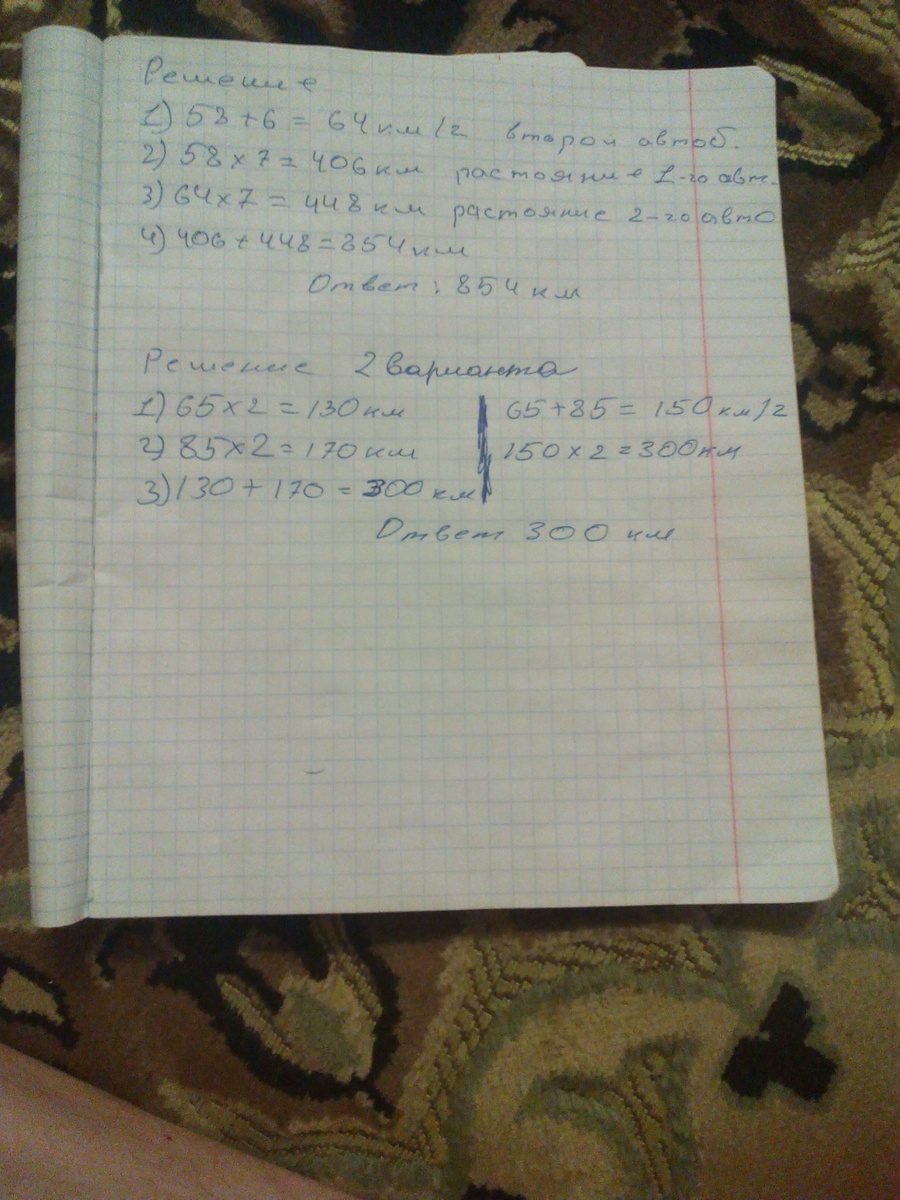 Решение
1) 58 + 6 = 64 км/ч второй автоб.
2) 58 x 7 = 406 км растояние 1-го авт.
3) 64 x 7 = 448 км растояние 2-го авто
4) 406 + 448 = 854 км
Ответ: 854 км
Решение 2 варианта
1) 65 x 2 = 130 км
2) 85 x 2 = 170 км
3) 130 + 170 = 300 км
65 + 85 = 150 км/ч
150 x 2 = 300 км
Ответ 300 км